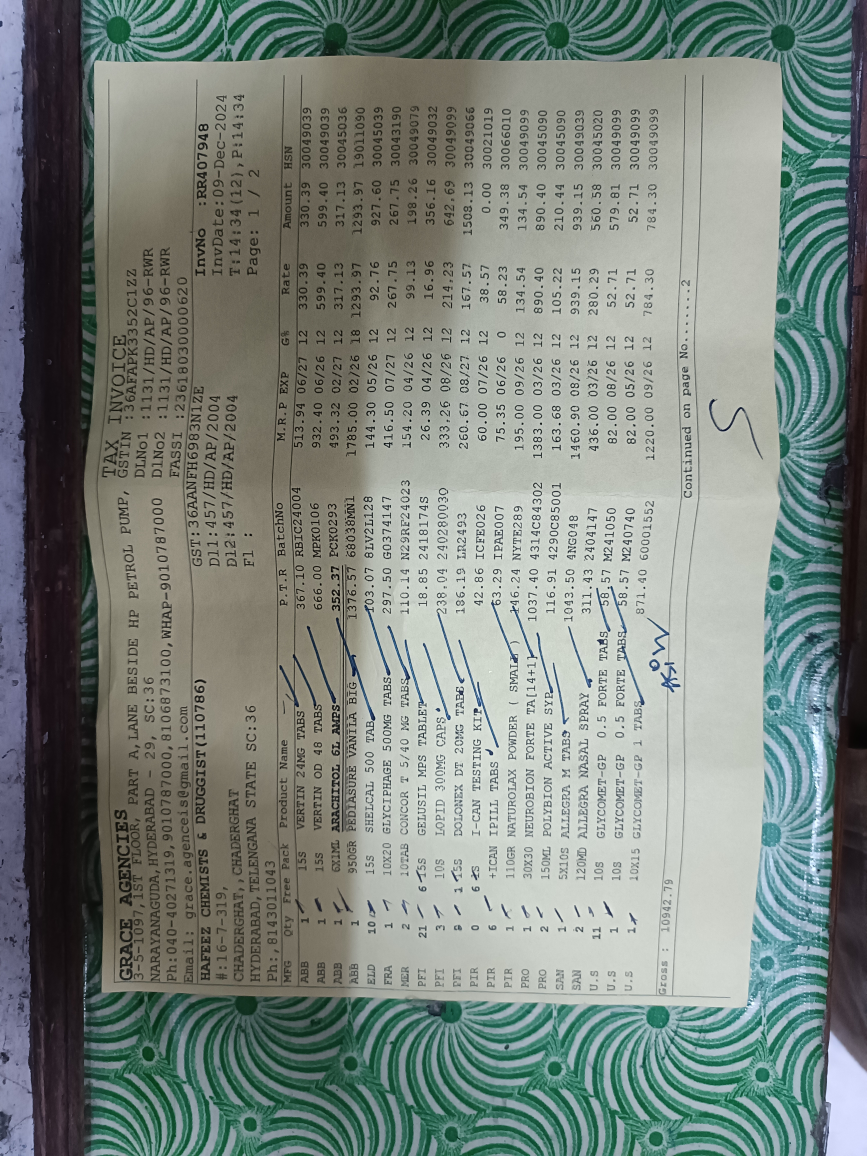 TAX INVOICE
GRACE AGENCIES
3-5-1097,1ST FLOOR, PART A,LANE BESIDE HP PETROL PUMP,
NARAYANAGUDA,HYDERABAD - 29, SC:36
Ph:040-40271319,9010787000,8106873100,WHAP-9010787000
Email: grace.agenceis@gmail.com
GSTIN :36AFAPK3352C1ZZ
DLNo1 :1131/HD/AP/96-RWR
DlNo2 :1131/HD/AP/96-RWR
FASSI :23618030000620
HAFEEZ CHEMISTS & DRUGGIST(110786)
#:16-7-319,
CHADERGHAT,,CHADERGHAT
HYDERABAD,TELENGANA STATE SC:36
Ph:,8143011043
GST:36AANFH6983N1ZE
Dl1:457/HD/AP/2004
Dl2:457/HD/AP/2004
Fl :
InvNo :RR407948
InvDate:09-Dec-2024
T:14:34(12),P:14:34
Page: 1 / 2
MFG Qty Free Pack Product Name P.T.R BatchNo M.R.P EXP G% Rate Amount HSN
ABB 1 15S VERTIN 24MG TABS 367.10 RBIC24004 513.94 06/27 12 330.39 330.39 30049039
ABB 1 15S VERTIN OD 48 TABS 666.00 MPK0106 932.40 06/26 12 599.40 599.40 30049039
ABB 1 6X1ML ARACHITOL 6L AMPS 352.37 PCK0293 493.32 02/27 12 317.13 317.13 30045036
ABB 1 950GR PEDIASURE VANILA BIG 1376.57 68038MN1 1785.00 02/26 18 1293.97 1293.97 19011090
ELD 10 15S SHELCAL 500 TAB 103.07 8LV2L128 144.30 05/26 12 92.76 927.60 30045039
FRA 1 10X20 GLYCIPHAGE 500MG TABS 297.50 G0374147 416.50 07/27 12 267.75 267.75 30043190
MER 2 10TAB CONCOR T 5/40 MG TABS 110.14 N29RF24023 154.20 04/26 12 99.13 198.26 30049079
PFI 21 6 15S GELUSIL MPS TABLET 18.85 2418174S 26.39 04/26 12 16.96 356.16 30049032
PFI 3 10S LOPID 300MG CAPS 238.04 240280030 333.26 08/26 12 214.23 642.69 30049099
PFI 9 1 15S DOLONEX DT 20MG TABS 186.19 LR2493 260.67 08/27 12 167.57 1508.13 30049066
PIR 0 6 I-CAN TESTING KIT 42.86 ICFE026 60.00 07/26 12 38.57 0.00 30021019
PIR 6 +ICAN IPILL TABS 63.29 IPAE007 75.35 06/26 0 58.23 349.38 30066010
PIR 1 110GR NATUROLAX POWDER ( SMALL ) 146.24 NYTE289 195.00 09/26 12 134.54 134.54 30049099
PRO 1 30X30 NEUROBION FORTE TA[14+1] 1037.40 4314C84302 1383.00 03/26 12 890.40 890.40 30045090
PRO 2 150ML POLYBION ACTIVE SYP 116.91 4290C85001 163.68 03/26 12 105.22 210.44 30045090
SAN 1 5X10S ALLEGRA M TABS 1043.50 4NG048 1460.90 08/26 12 939.15 939.15 30049039
SAN 2 120MD ALLEGRA NASAL SPRAY 311.43 2404147 436.00 03/26 12 280.29 560.58 30045020
U.S 11 10S GLYCOMET-GP 0.5 FORTE TABS 58.57 M241050 82.00 08/26 12 52.71 579.81 30049099
U.S 1 10S GLYCOMET-GP 0.5 FORTE TABS 58.57 M240740 82.00 05/26 12 52.71 52.71 30049099
U.S 1 10X15 GLYCOMET-GP 1 TABS 871.40 60001552 1220.00 09/26 12 784.30 784.30 30049099
Gross : 10942.79
Continued on page No.......2